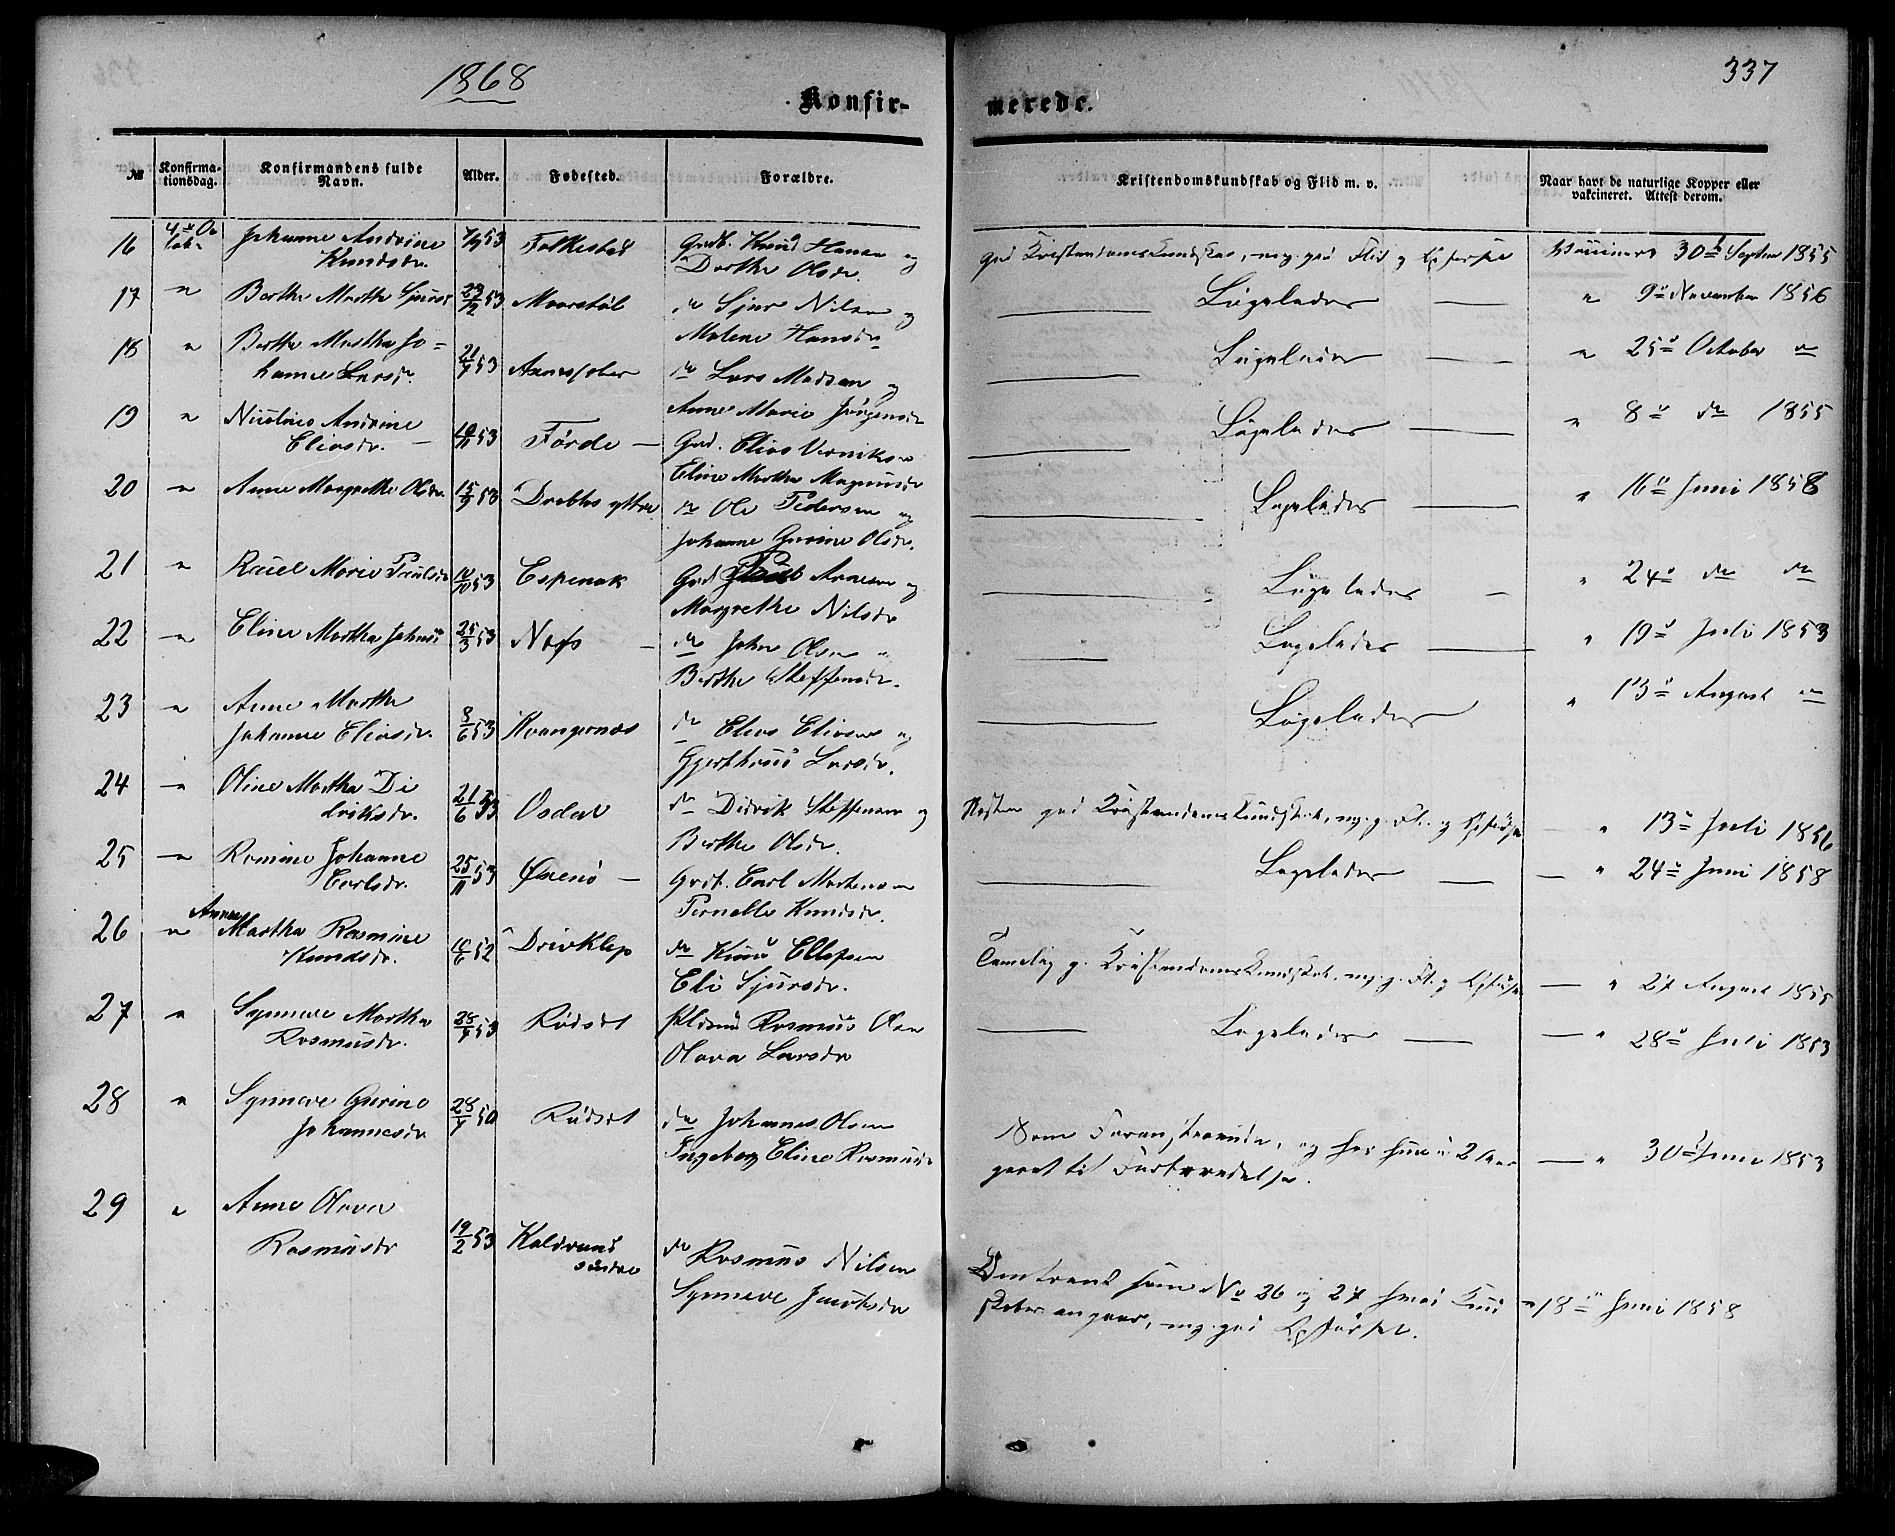 1868
337
Konfir-
merede.
№
Konfirma-
tionsdag.
Konfirmandens fulde
Navn.
Alder.
Fødested.
Forældre.
Kristendomskundskab og Flid m. v.
Naar havt de naturlige Kopper eller
vakcineret. Attest derom.
16 Johanne Andrine 53 Folkestad Grdb. Knud Hansen og
Knudsdr. Dorthe Olsdr.
god Kristendomskundskab, meg. god Flid og Opførsel 30 Septem 1855
17 " Berthe Martha Sjursd 53 " Sjur Nilsen og
Malene Hansdr
Ligeledes " 9 November 1856
18 " Berthe Martha Jo=
hanne Larsdr. 21 53 do Lars Madsen og
Anne Marie Jørgensdr
Ligeledes " 25 October "
19 " Nicoline Andrine
Eliasdr. 53 Førde Grd. Elias
Eline Martha Magnusdr
Ligeledes " 8 do 1855
20 " Anne Margrethe Olsdr. 15/9 53 Drabløs yttre do Ole Pedersen og
Johanne Gurine Olsdr.
Ligeledes " 16 Juni 1858
21 " Marie Paulsdr 53 Espenak Grd Arnesen og
Margrethe Nilsdr
Ligeledes " 24 do do
22 " Eline Martha Johnsd 25/3 53 do John Olsen
Berthe Steffensdr.
Ligeledes " 19 Juli 1853
23 " Anne Martha
Johanne Eliasdr. 53 Kvangernæs do Elias Eliasen og
Larsdr.
Ligeledes " 13 August "
24 " Oline Martha Di
driksdr. 21/6 53 Osdal do Didrik Steffensen og
Berthe Olsdr.
Næsten god Kristendomskundskab, m. g. Fl. og Opførsel " 13 Juli 1856
25 " Romine Johanne
Carlsdr. 25/11 53 Øxenø Grdb. Carl Mortensen
Pernelle Knudsdr.
Ligeledes " 24 Juni 1858
Anne
26 " Martha Rasmine
Knudsdr. 52 Drivklep do Knud Ellefsen
Eli Sjursdr.
Temelig g. Kristendomskundskab, m. g. Fl. og Opførsel " 27 August 1855
27 " Synneve Martha
Rasmusdr. 28 53 Rødset Rasmus Olsen
Olava Larsdr
Ligeledes " 28 Juli 1853
28 " Synneve Gurine
Johannesdr 28 50 Rødset do Johannes Olsen
Ingeborg Eline Rasmusdr
Som Foranstaaende, og har hun i 2 Aar
gaaet til Forberedelse. " 30 Juni 1853
29 " Anne Olava
Rasmusdr 19/2 53 søndre do Rasmus Nilsen
Synneve Jacobsdr
Omtrent som No 26 og 27 hvad Kund
skaber angaar, meg. god Opførsel. " 18 Juni 1858